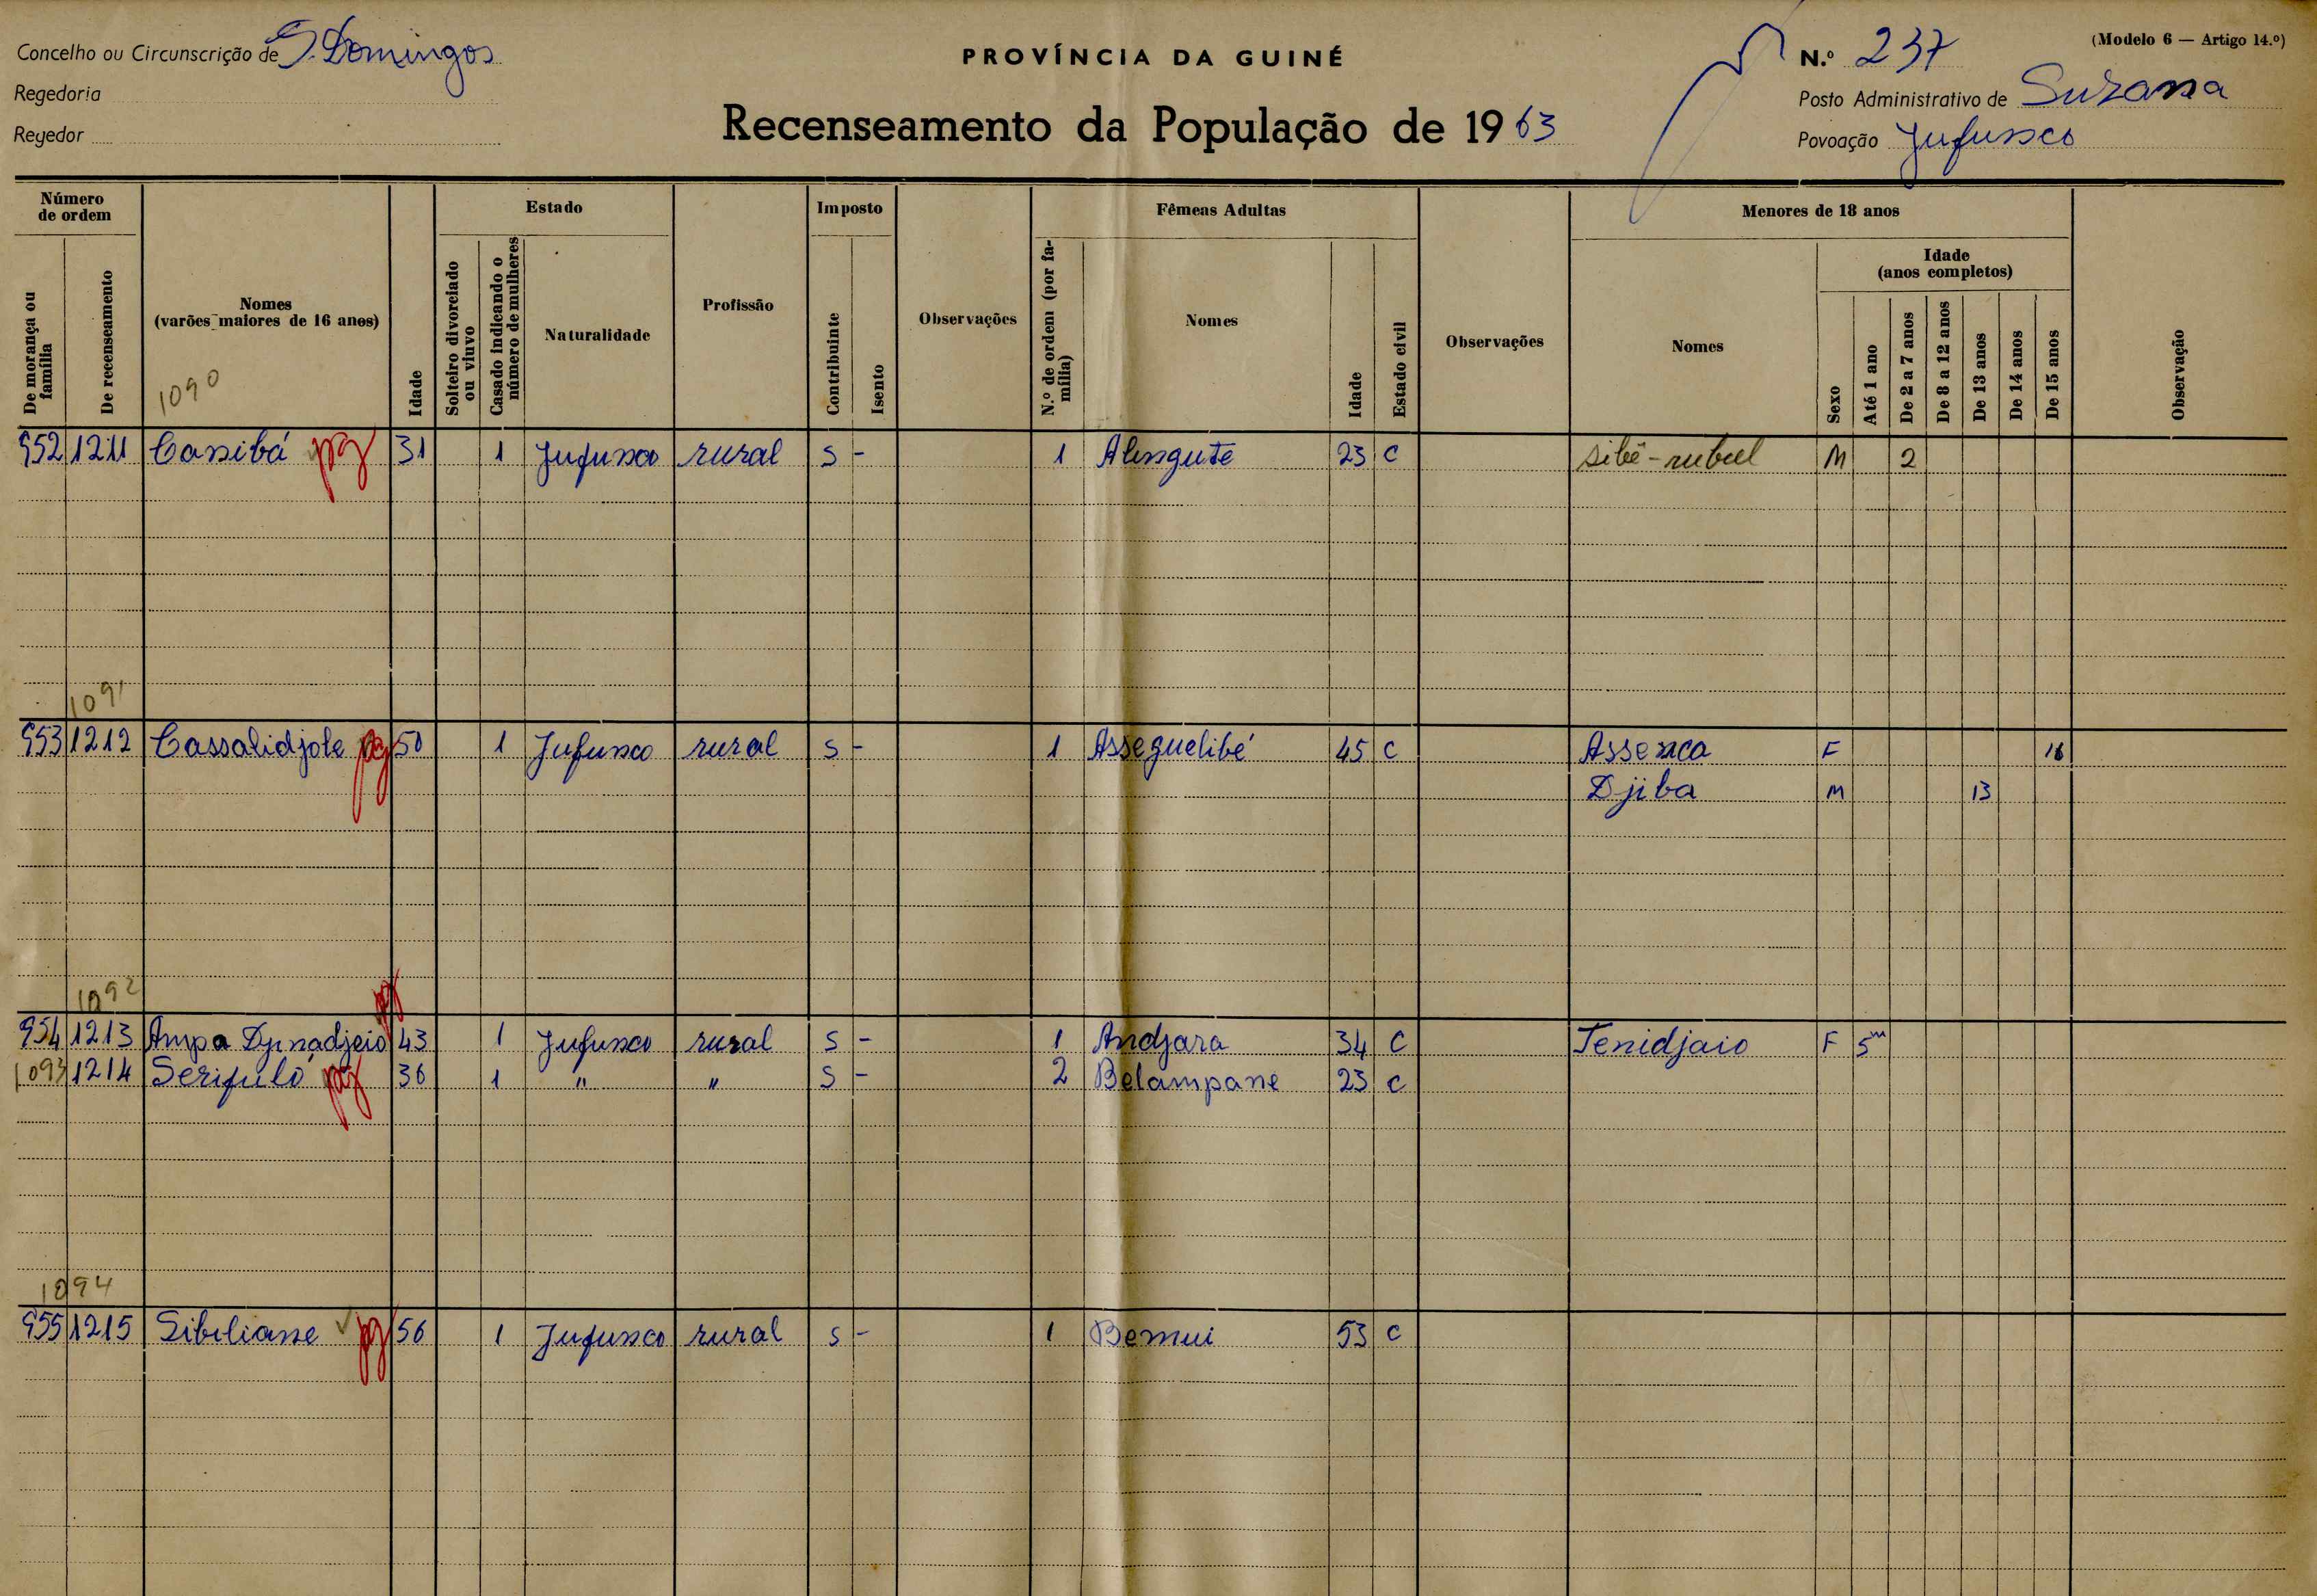 Concelho ou Circunscrição de S. Domingos
PROVÍNCIA DA GUINÉ
N.º 237
(Modelo 6 — Artigo 14.º)
Regedoria
Posto Administrativo de Suzana
Regedor
Recenseamento da População de 1963
Povoação Jufunco
Número de ordem
Estado
Imposto
Fêmeas Adultas
Menores de 18 anos
De morança ou família
De recenseamento
Nomes (varões maiores de 16 anos)
Idade
Solteiro divorciado ou viuvo
Casado indicando o número de mulheres
Naturalidade
Profissão
Contribuinte
Isento
Observações
N.º de ordem (por família)
Nomes
Idade
Estado civil
Observações
Nomes
Sexo
Idade (anos completos)
Até 1 ano
De 2 a 7 anos
De 8 a 12 anos
De 13 anos
De 14 anos
De 15 anos
Observação
1090
952 1211 Cassibá pg 31 1 Jufunco rural S - 1 Alingute 23 C M 2
1091
953 1212 Cassalidjole pg 50 1 Jufunco rural S - 1 Asseguelibé 45 C Assenca F 16
Djiba M 13
1092 pg
954 1213 Ampa Djinadjeió 43 1 Jufunco rural S - 1 Andjara 34 C Tenidjaio F 5m
1093 1214 Serifuló pg 36 1 " " S - 2 Belampane 23 C
1094
955 1215 Sibiliane pg 56 1 Jufunco rural S - 1 Bemui 53 C